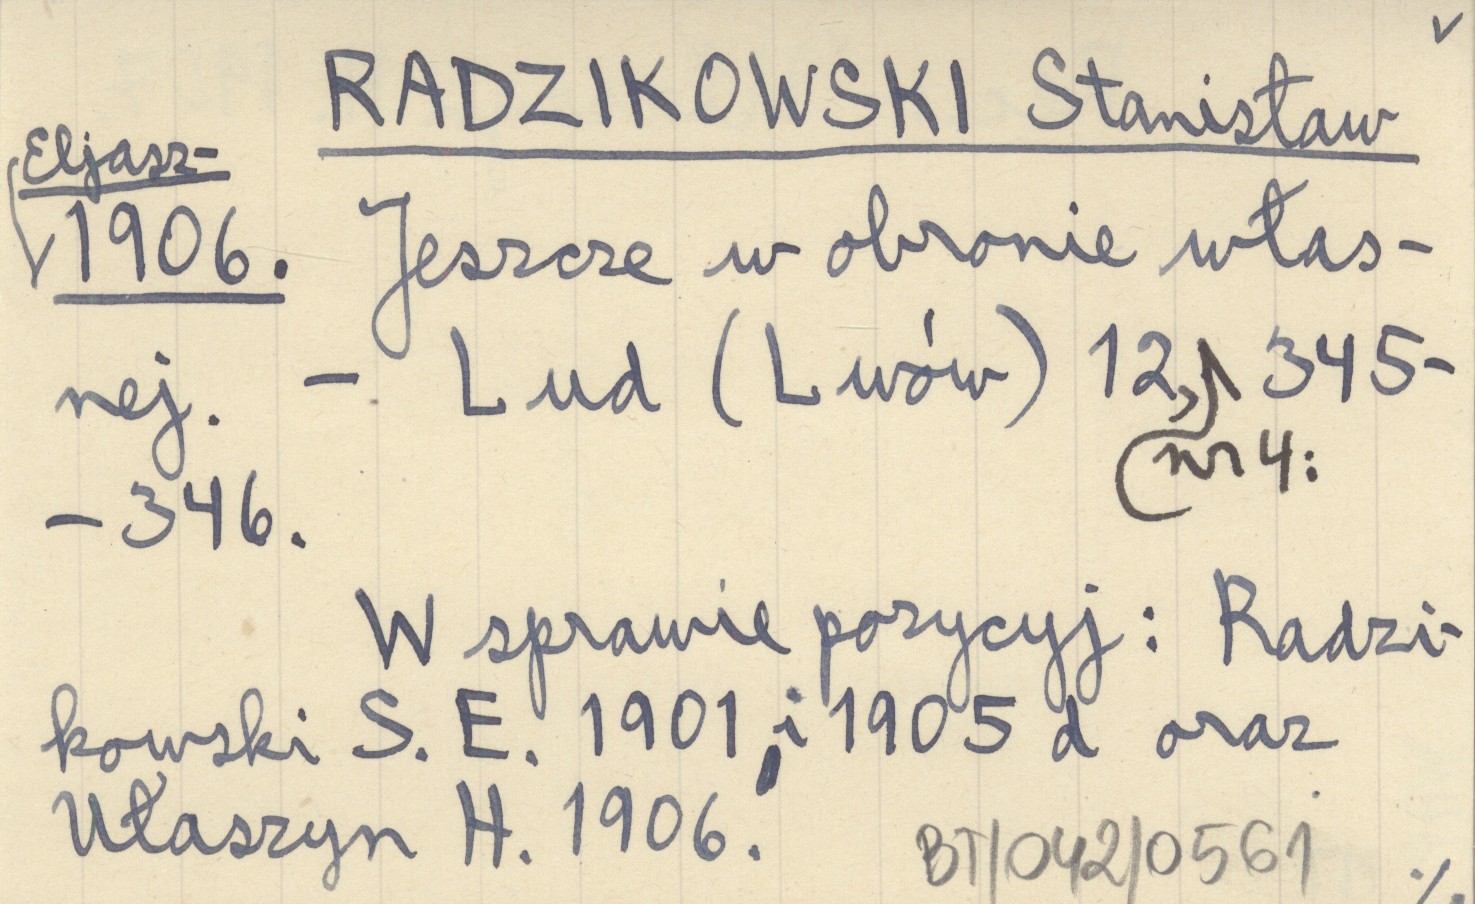 v
RADZIKOWSKI Stanisław
Eljasz-
1906. Jeszcze w obronie włas-
nej. - Lud (Lwów) 12, 345-
nr 4:
-346.
W sprawie pozycyj: Radzi-
kowski S. E. 1901, i 1905 d oraz
Ułaszyn H. 1906.
BT/042/0561
./.